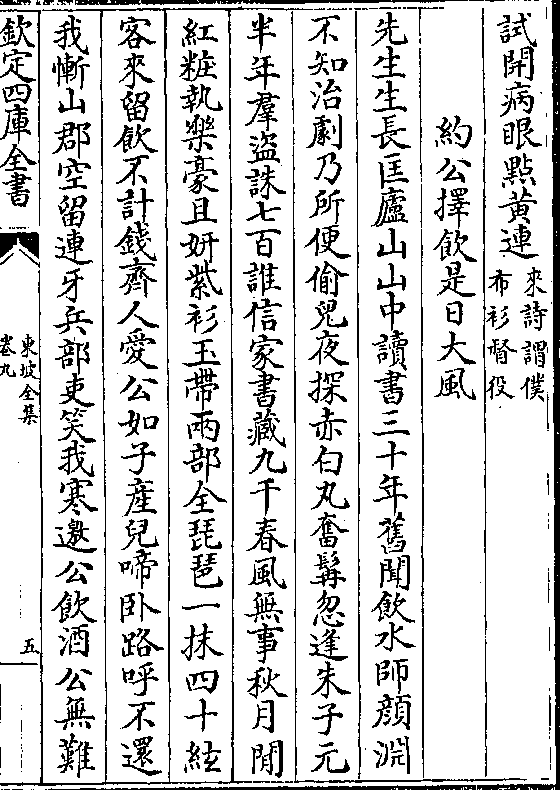 試開病眼點黃連來詩謂僕布衫督役
約公擇飲是日大風
先生生長匡廬山山中讀書三十年舊聞飲水師顏淵
不知治劇乃所便偷兒夜探赤白丸奮髯忽逢朱子元
半年羣盜誅七百誰信家書藏九千春風無事秋月閒
紅粧執樂豪且妍紫衫玉帶兩部全琵琶一抹四十絃
客來留飲不計錢齊人愛公如子產兒啼臥路呼不還
我慚山郡空留連牙兵部吏笑我寒邀公飲酒公無難
欽定四庫全書
東坡全集
卷九
五